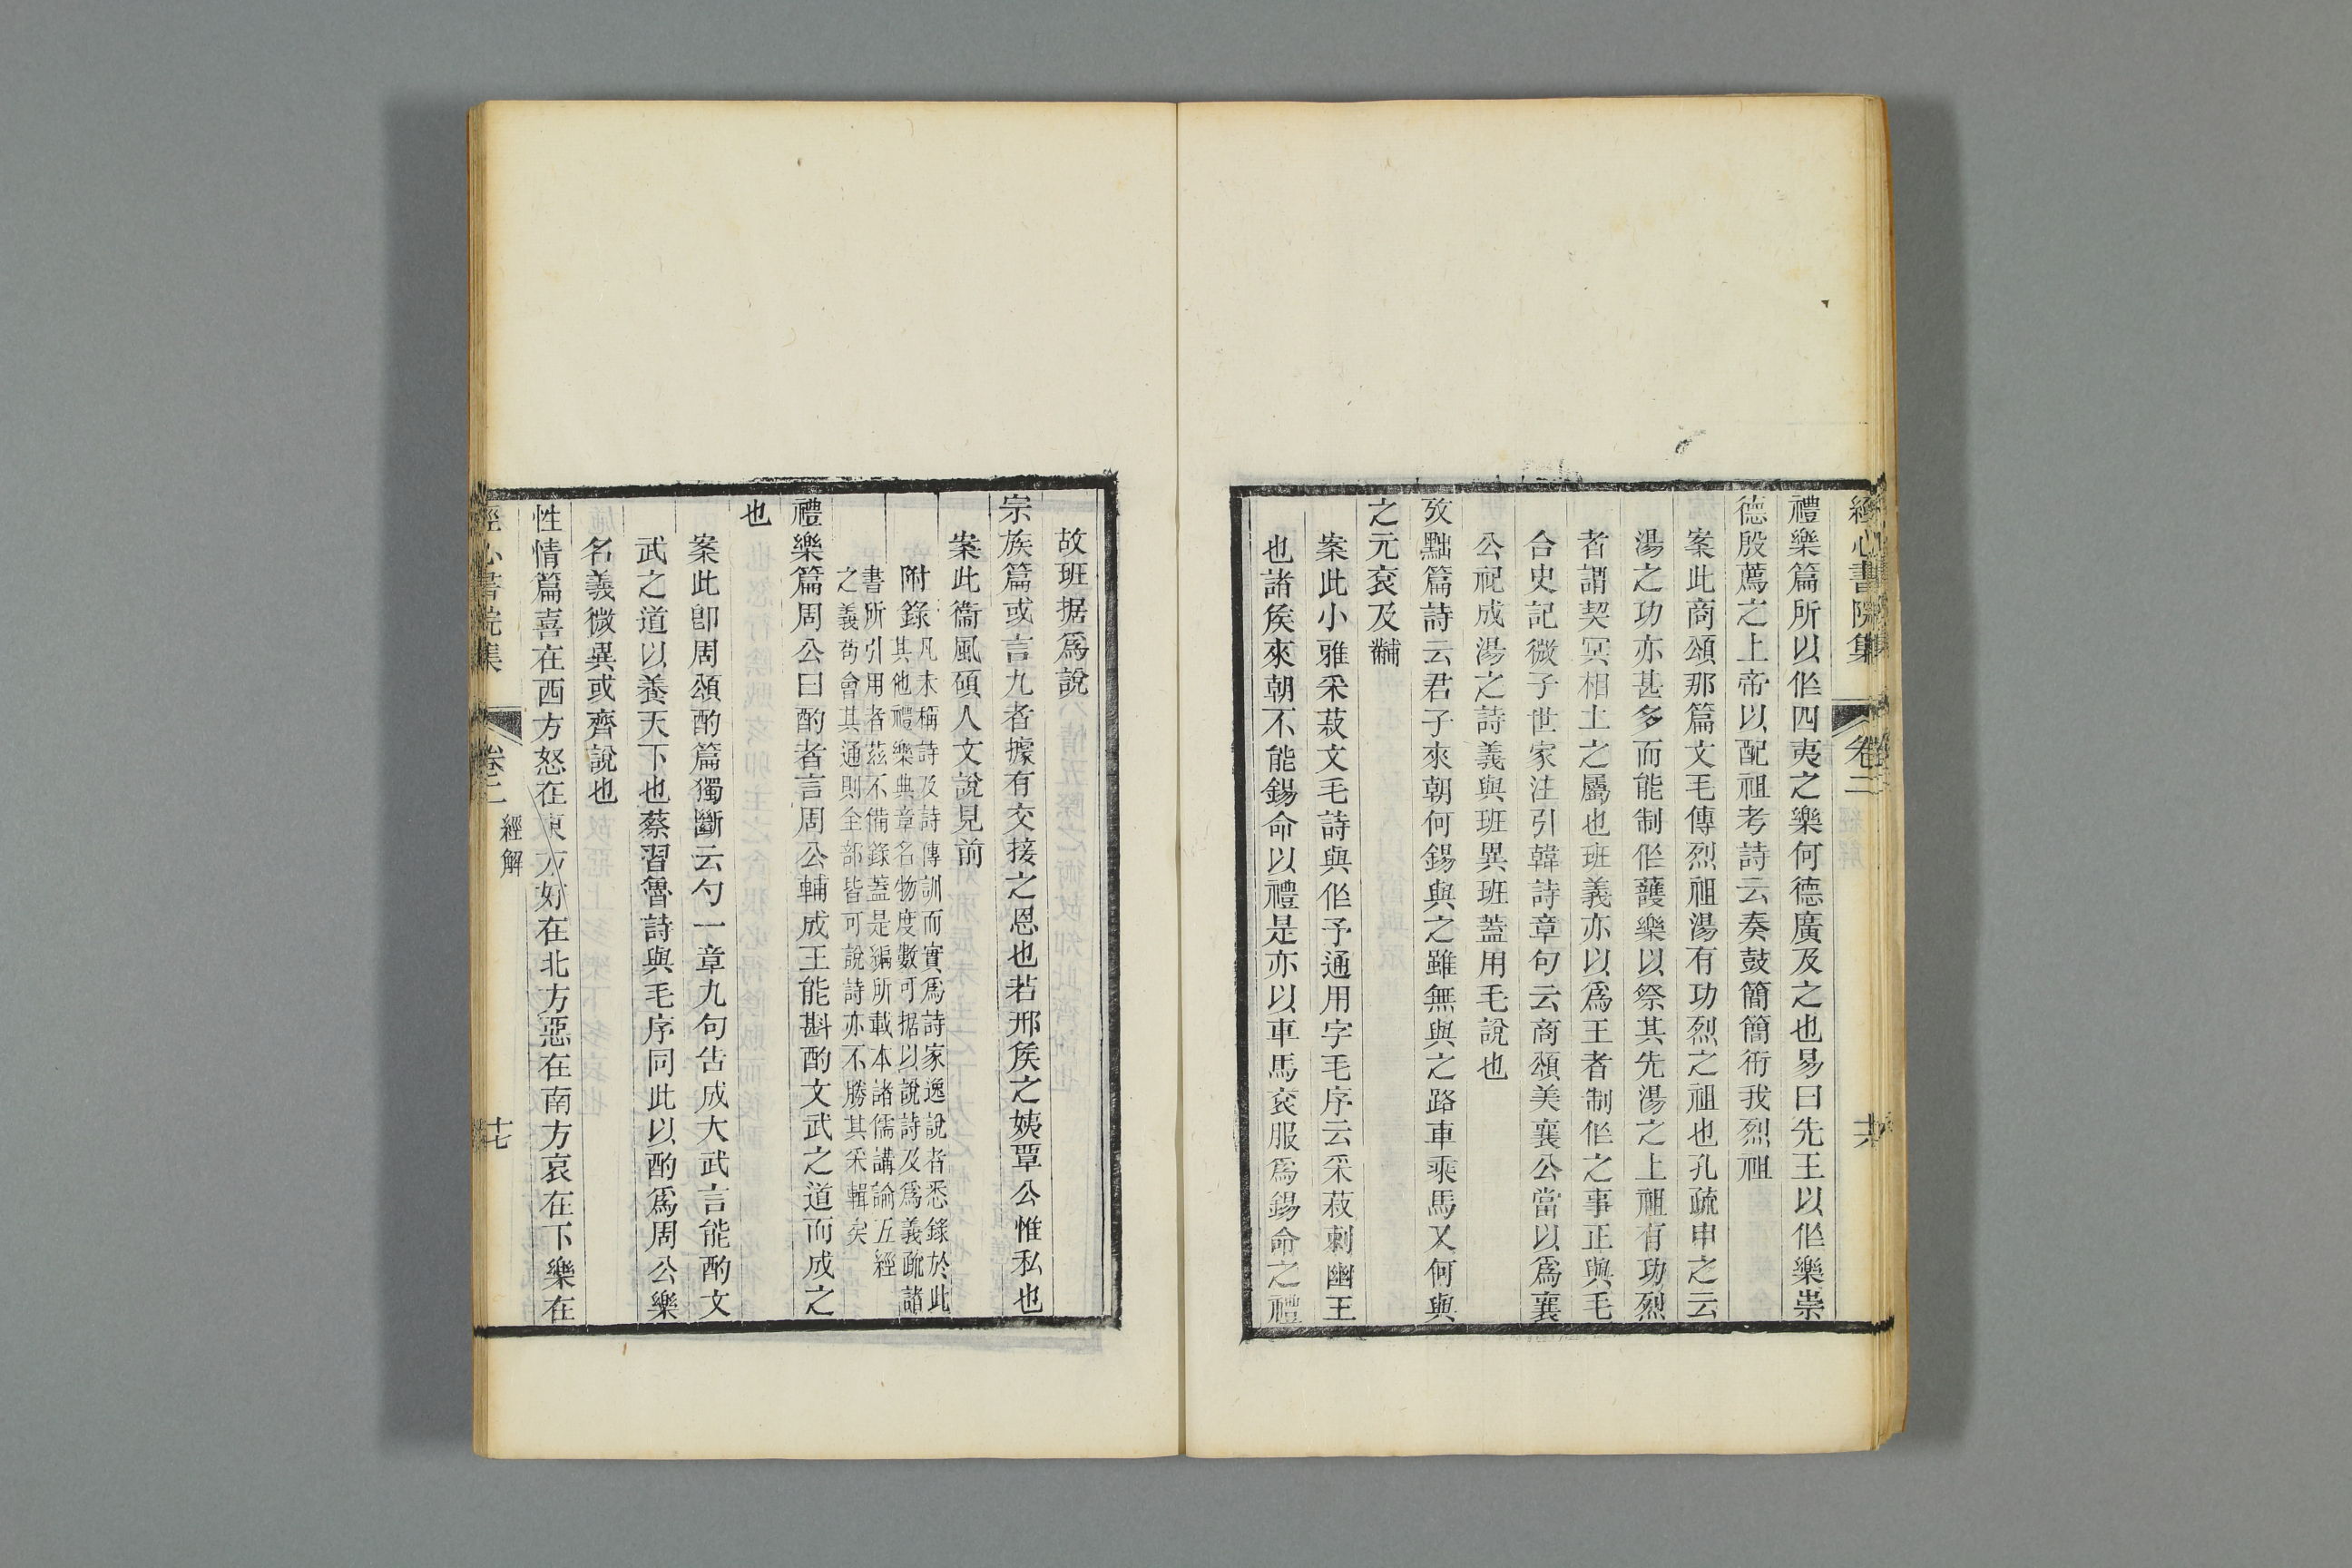 經心書院集 卷二 十六
禮樂篇所以作四夷之樂何德廣及之也易曰先王以作樂崇
德殷薦之上帝以配祖考詩云奏鼓簡簡衎我烈祖
案此商頌那篇文毛傳烈祖湯有功烈之祖也孔疏申之云
湯之功亦甚多而能制作護樂以祭其先湯之上祖有功烈
者謂契冥相土之屬也班義亦以爲王者制作之事正與毛
合史記微子世家注引韓詩章句云商頌美襄公當以爲襄
公祀成湯之詩義與班異班蓋用毛說也
攷黜篇詩云君子來朝何錫與之雖無與之路車乘馬又何與
之元袞及黼
案此小雅采菽文毛詩與作予通用字毛序云采菽刺幽王
也諸矦來朝不能錫命以禮是亦以車馬袞服爲錫命之禮
故班据爲說
宗族篇或言九者據有交接之恩也若邢矦之姨覃公惟私也
案此衞風碩人文說見前
附錄凡未稱詩及詩傳訓而實爲詩家逸說者悉錄於此
其他禮樂典章名物度數可据以說詩及爲義疏諸
書所引用者茲不備錄蓋是編所載本諸儒講論五經
之義苟會其通則全部皆可說詩亦不勝其采輯矣
禮樂篇周公曰酌者言周公輔成王能斟酌文武之道而成之
也
案此卽周頌酌篇獨斷云勺一章九句告成大武言能酌文
武之道以養天下也蔡習魯詩與毛序同此以酌爲周公樂
名義微異或齊說也
性情篇喜在西方怒在東方好在北方惡在南方哀在下樂在
經心書院集 卷二 經解 十七